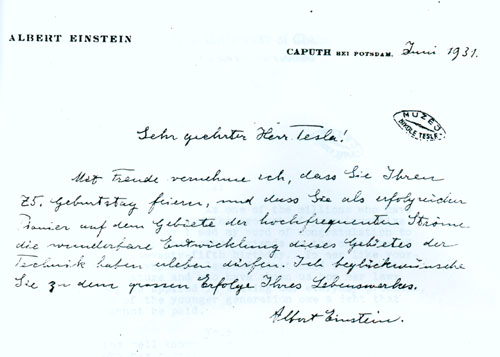 ALBERT EINSTEIN
CAPUTH BEI POTSDAM, Juni 1931.
MUZEJ
NIKOLE TESLE
Sehr geehrter Herr Tesla!
Mit Freude vernehme ich, dass Sie Ihren
75. Geburtstag feiern, und dass Sie als erfolgreicher
Pionier auf dem Gebiete der hochfrequenten Ströme
die wunderbare Entwicklung dieses Gebietes der
Technik haben erleben dürfen. Ich beglückwünsche
Sie zu dem grossen Erfolge Ihres Lebenswerkes.
of the younger generation owe a debt that
cannot be paid.
Albert Einstein.